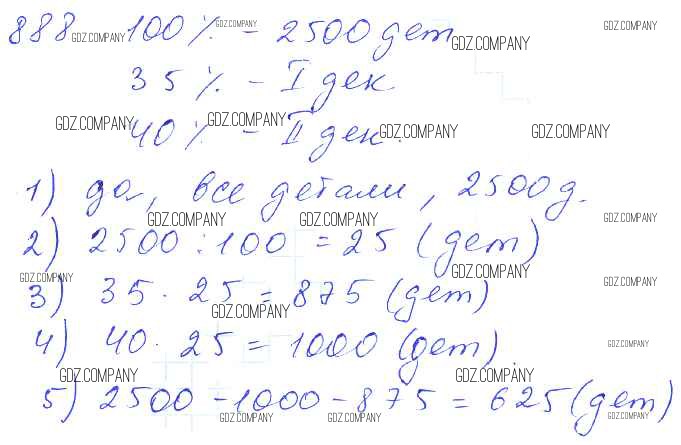 888 GDZ.COMPANY 100 % GDZ.COMPANY – 2500 дет GDZ.COMPANY GDZ.COMPANY GDZ.COMPANY
35 % – I дек
GDZ.COMPANY 40 % GDZ.COMPANY – II дек. GDZ.COMPANY GDZ.COMPANY
1) да, все детали, 2500 д.
GDZ.COMPANY GDZ.COMPANY GDZ.COMPANY
2) 2500 : 100 = 25 (дет)
GDZ.COMPANY GDZ.COMPANY GDZ.COMPANY
3) 35 · 25 = 875 (дет)
GDZ.COMPANY
4) 40 · 25 = 1000 (дет)
GDZ.COMPANY
GDZ.COMPANY GDZ.COMPANY
5) 2500 – 1000 – 875 = 625 (дет)
GDZ.COMPANY GDZ.COMPANY GDZ.COMPANY